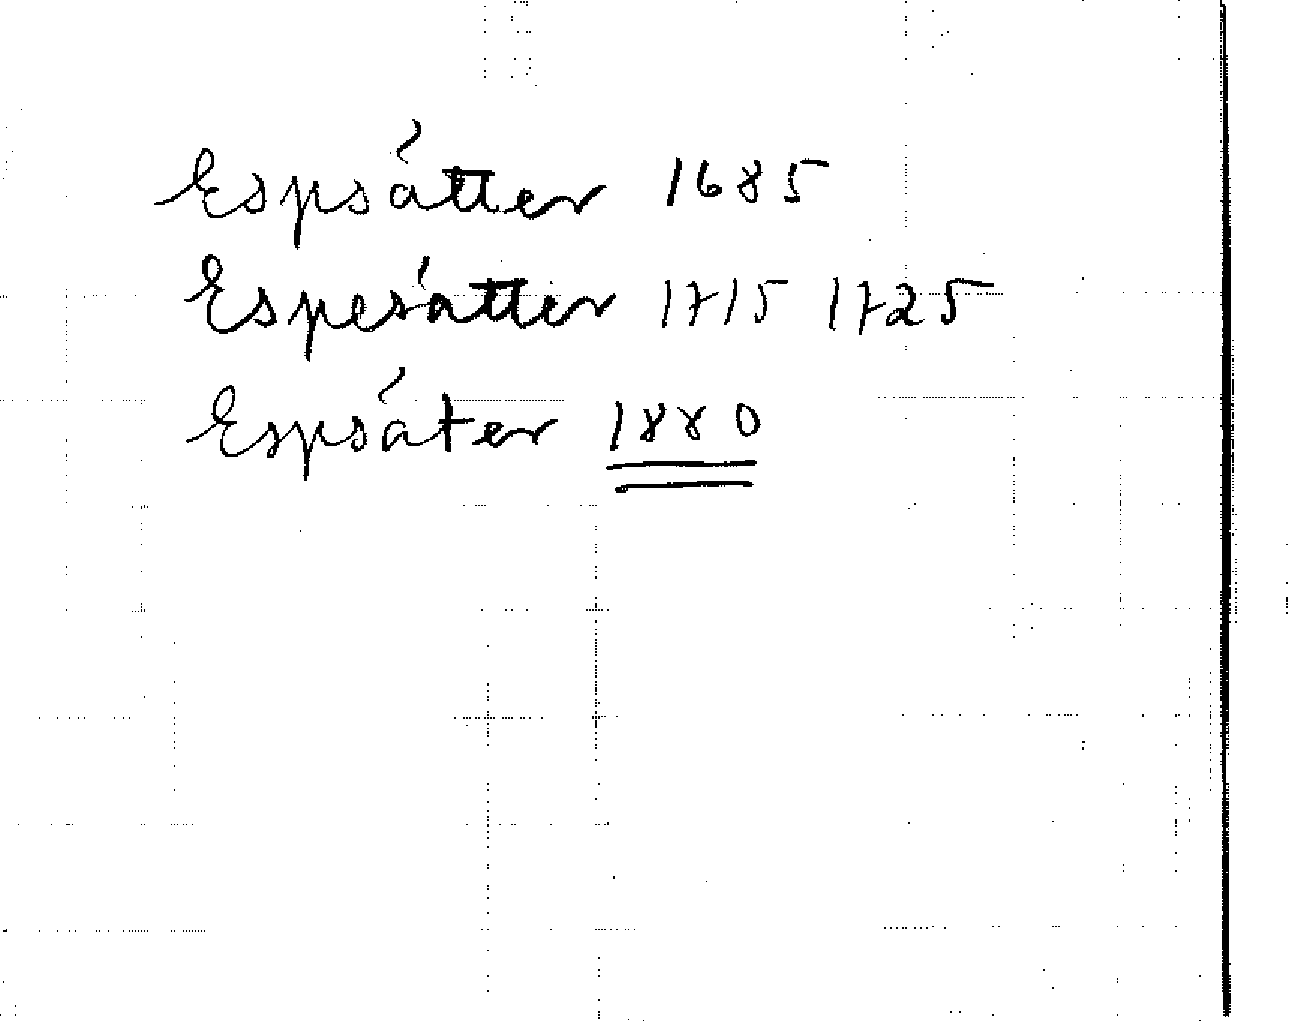 Espsátter 1685
Espesátter 1715 1725
Espsáter 1880